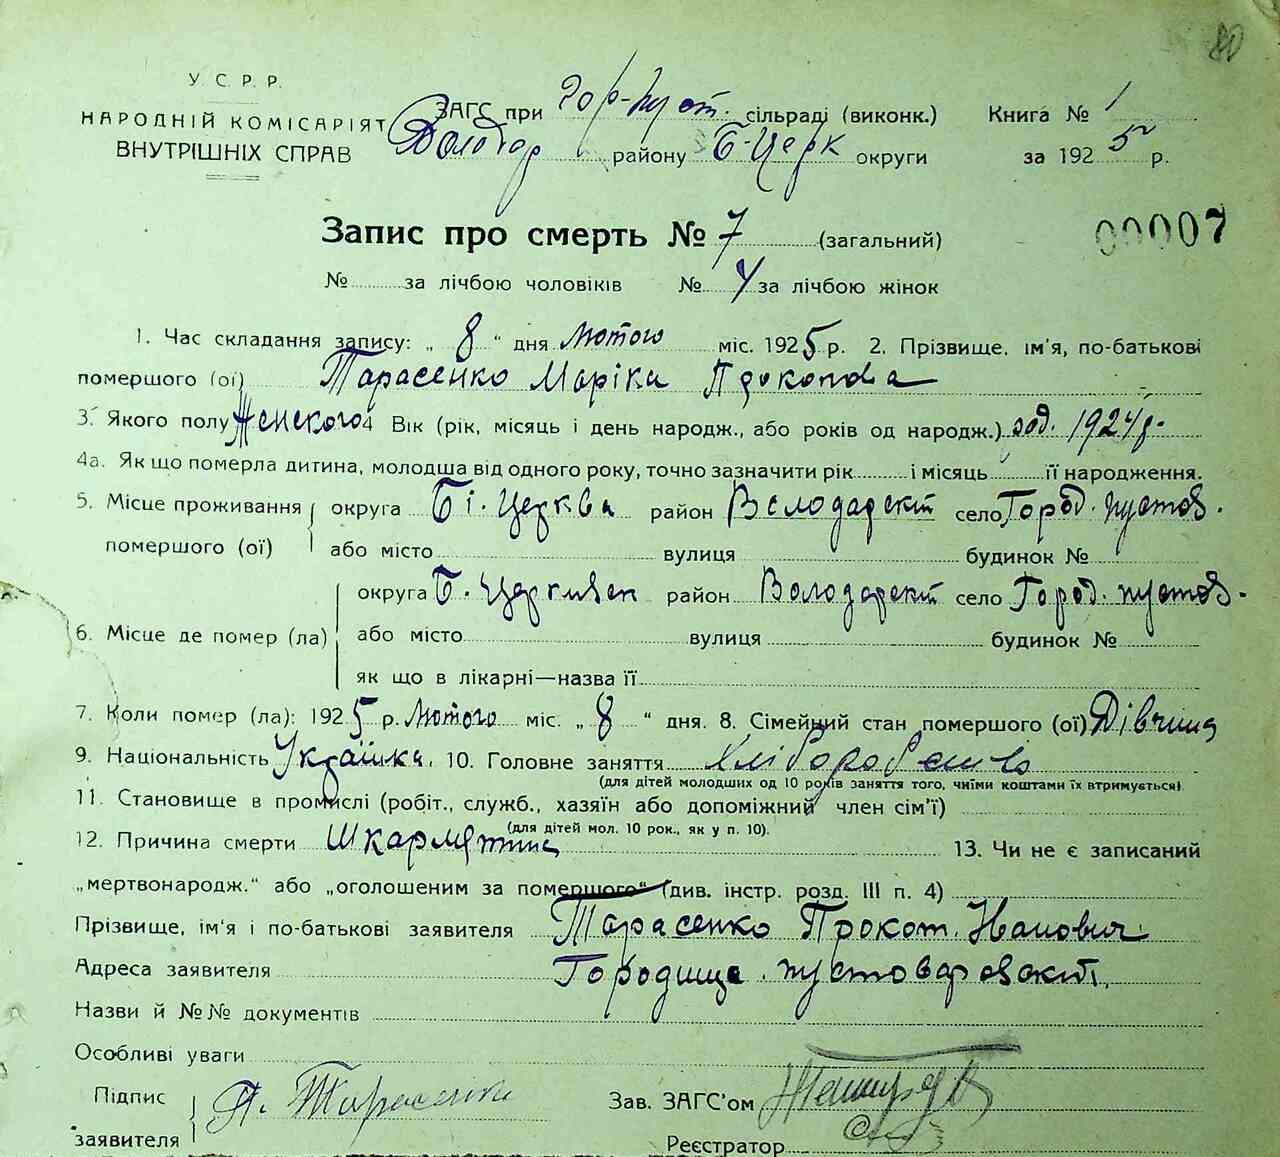 80
У. С. Р. Р.
НАРОДНІЙ КОМІСАРІЯТ
ВНУТРІШНІХ СПРАВ
ЗАГС при Гор-пуст. сільраді (виконк.)
Володар району Б-Церк округи
Книга № 1
за 1925 р.
Запис про смерть № 7 (загальний)
00007
№ за лічбою чоловіків № 4 за лічбою жінок
1. Час складання запису: „ 8 “ дня Лютого міс. 1925 р. 2. Прізвище, ім'я, по-батькові
помершого (ої) Тарасенко Маріка Прокопова
3. Якого полу Женского 4 Вік (рік, місяць і день народж., або років од народж.) год. 1924 г.
4а. Як що померла дитина, молодша від одного року, точно зазначити рік і місяць її народження.
5. Місце проживання округа Бі. Церква район Вєлодарскт село Город. пустов.
помершого (ої) або місто вулиця будинок №
округа Б. Церкивск район Володарскт село Город. пустов.
6. Місце де помер (ла) або місто вулиця будинок №
як що в лікарні—назва її
7. Коли помер (ла): 1925 р. Лютого міс. „ 8 “ дня. 8. Сімейний стан помершого (ої) Дівчина
9. Національність Українка. 10. Головне заняття Хліборобство
(для дітей молодших од 10 років заняття того, чиїми коштами їх втримується)
11. Становище в промислі (робіт., служб., хазяїн або допоміжний член сім'ї)
(для дітей мол. 10 рок., як у п. 10).
12. Причина смерти Шкарлятина 13. Чи не є записаний
„мертвонародж.“ або „оголошеним за помершого“ (див. інстр. розд. III п. 4)
Прізвище, ім'я і по-батькові заявителя Тарасенко Прокоп. Іванович
Адреса заявителя Городище. пустоваровскт.
Назви й №№ документів
Особливі уваги
Підпис П. Тарасенко Зав. ЗАГС'ом
заявителя Реєстратор